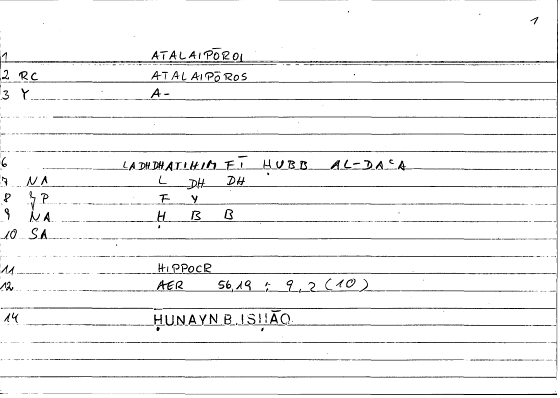 1
1 ATALAIPŌROI
2 RC ATALAIPŌROS
3 Y A-
6 LADHDHATIHIM FĪ ḤUBB AL-DAʿA
7 NA L DH DH
8 YP F Y
9 NA Ḥ B B
10 SA
11 HIPPOCR
12 AER 56,19 ; 9,2 (10)
14 ḤUNAYN B. ISḤĀQ